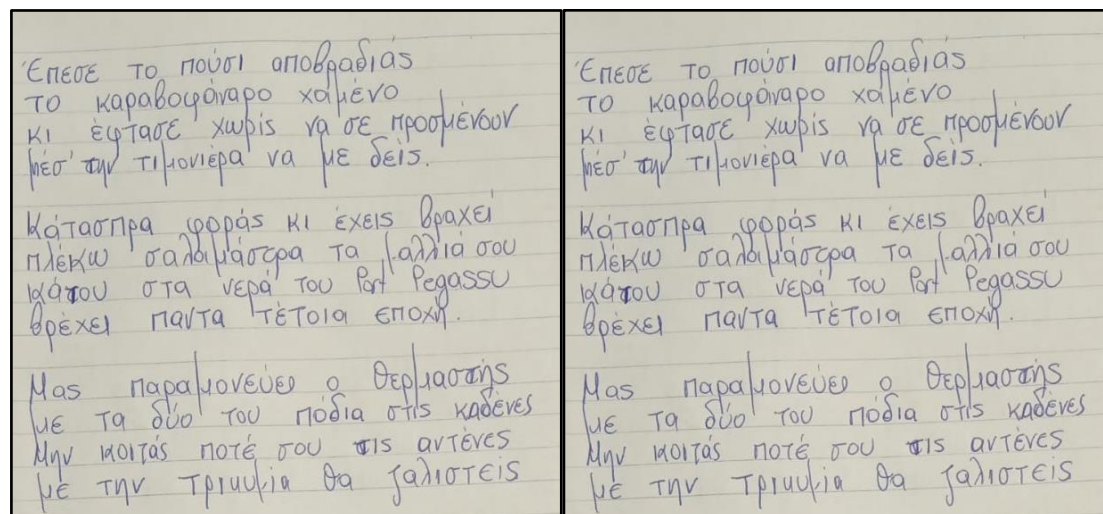 Έπεσε το πούσι αποβραδιάς
το καραβοφάναρο χαμένο
κι έφτασε χωρίς να σε προσμένουν
μέσ' την τιμονιέρα να με δείς.
Κάτασπρα φοράς κι έχεις βραχεί
πλέκω σαλαμάστρα τα μαλλιά σου
κάτου στα νερά του Port Pegassu
βρέχει παντα τέτοια εποχή.
Μας παραμονεύει ο θερμαστής
με τα δύο του πόδια στις καδένες
Μην κοιτάς ποτέ σου τις αντένες
με την τρικυμία θα ζαλιστείς
Έπεσε το πούσι αποβραδιάς
το καραβοφάναρο χαμένο
κι έφτασε χωρίς να σε προσμένουν
μέσ' την τιμονιέρα να με δείς.
Κάτασπρα φοράς κι έχεις βραχεί
πλέκω σαλαμάστρα τα μαλλιά σου
κάτου στα νερά του Port Pegassu
βρέχει παντα τέτοια εποχή.
Μας παραμονεύει ο θερμαστής
με τα δύο του πόδια στις καδένες
Μην κοιτάς ποτέ σου τις αντένες
με την τρικυμία θα ζαλιστείς